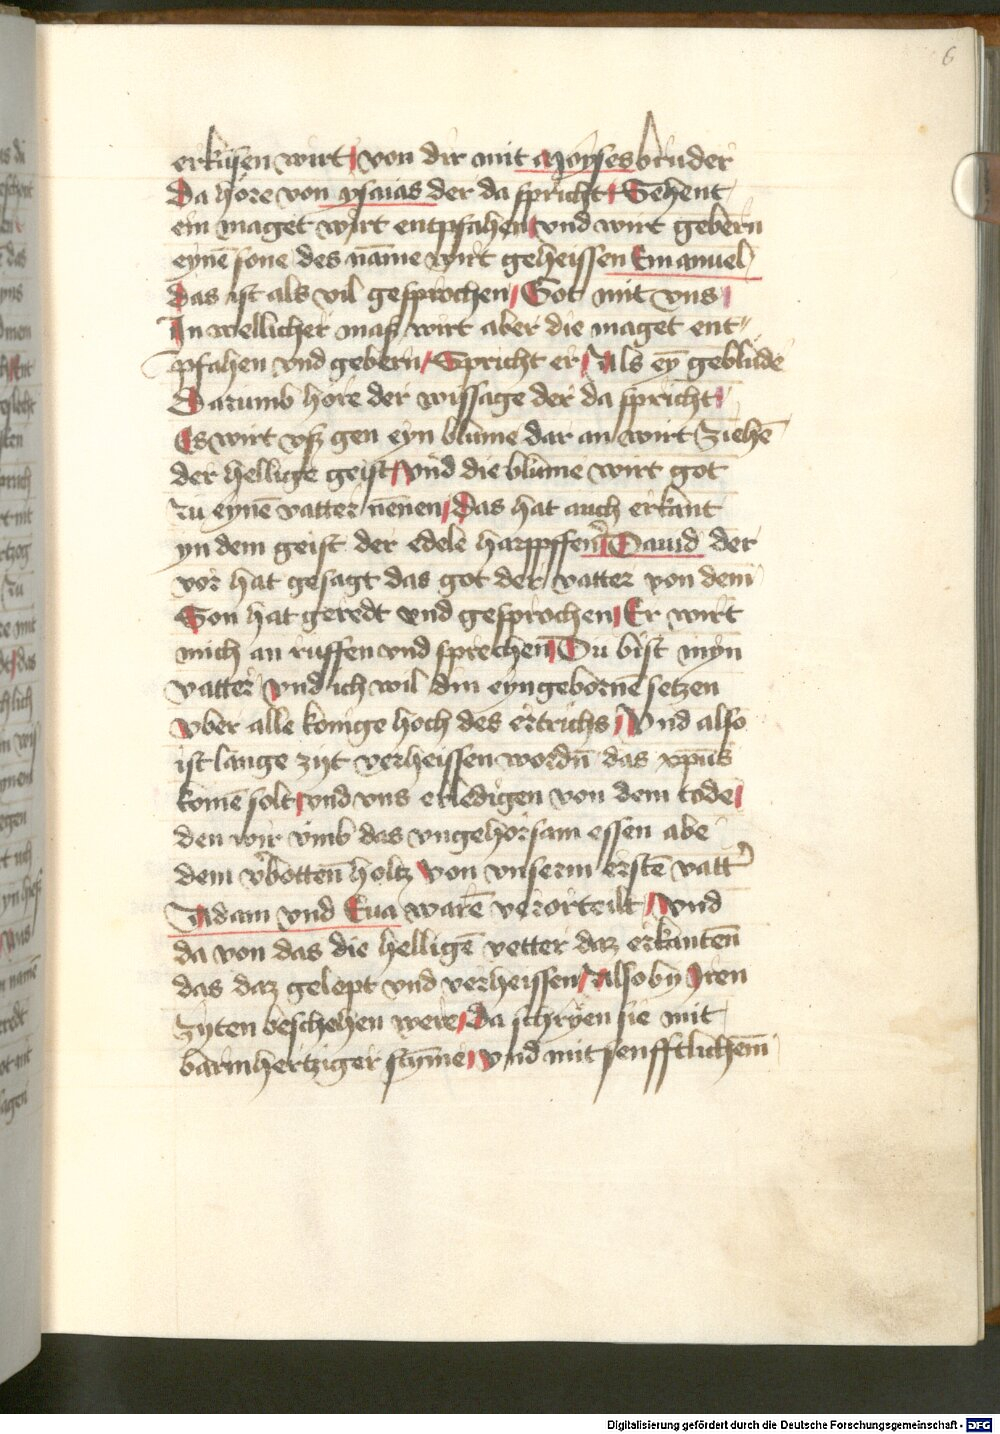 6
erkusen wirt / von dir mit Moyses bruder
Da hore von ysaias der da spricht / Sehent
ein maget wirt entpfahen / vnd wirt gebern
eynē sone des nāme wirt geheissen Emanuel
Das ist als vil gesprochen / Got mit vns /
In wellicher masz wirt aber die maget ent-
pfahen vnd gebern / Spricht er / Als ey̅ geblude
Darumb hore der wissage der da spricht /
Es wirt vsz gen eyn blume dar an wirt ziehē
der hellige geist / vnd die blume wirt got
zu eynē vatter nēnen / Das hat auch erkant
yn dem geist der edele harpffenr̄ / Dauid der
vor hat gesagt das got der vatter von dem
Son hat geredt vnd gesprochen / Er wirt
mich an ruffen vnd sprechen / Du bist myn
vatter / vnd ich wil din eyngebornē setzen
vber alle konige hoch des ertrichs / Vnd also
ist lange zijt verheissen wordn̄ das xpūs
komē solt / vnd vns erledigen von dem tode /
den wir vmb das vngehorsam essen abe
dem v̄botten holtz von vnserm erstē vatt̄
Adam vnd Eua warē verorteilt / Vnd
da von das die helligē vetter daz erkanten̄
das daz gelept vnd verheissen / Also by Iren
zyten beschehen were / Da schryen sie mit
barmhertziger stȳme / Vnd mit senfftlichem̄
Digitalisierung gefördert durch die Deutsche Forschungsgemeinschaft - DFG